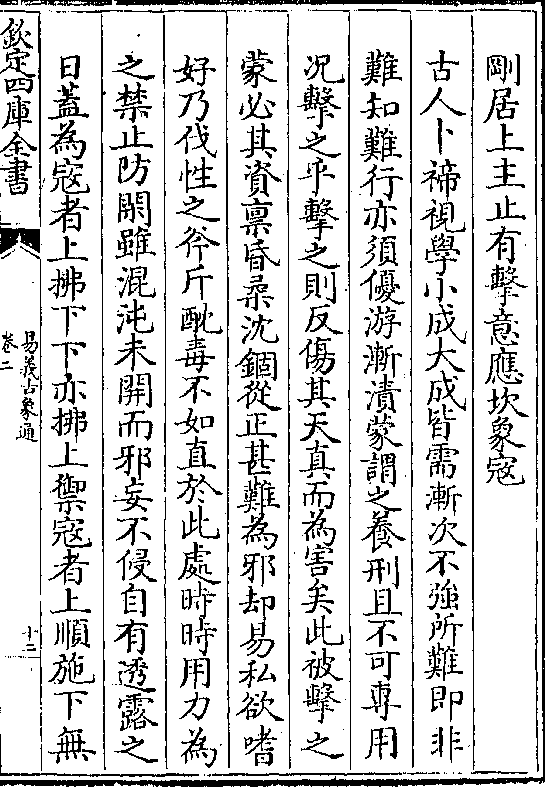 剛居上主止有擊意應坎象寇
古人卜禘視學小成大成皆需漸次不強所難即非
難知難行亦須優游漸漬蒙謂之養刑且不可專用
况擊之乎擊之則反傷其天真而為害矣此被擊之
蒙必其資禀昏桑沈錮從正甚難為邪却易私欲嗜
好乃伐性之斧斤酖毒不如直於此處時時用力為
之禁止防閑雖混沌未開而邪妄不侵自有透露之
日蓋為寇者上拂下下亦拂上禦寇者上順施下無
欽定四庫全書
易義古象通
卷二
十二